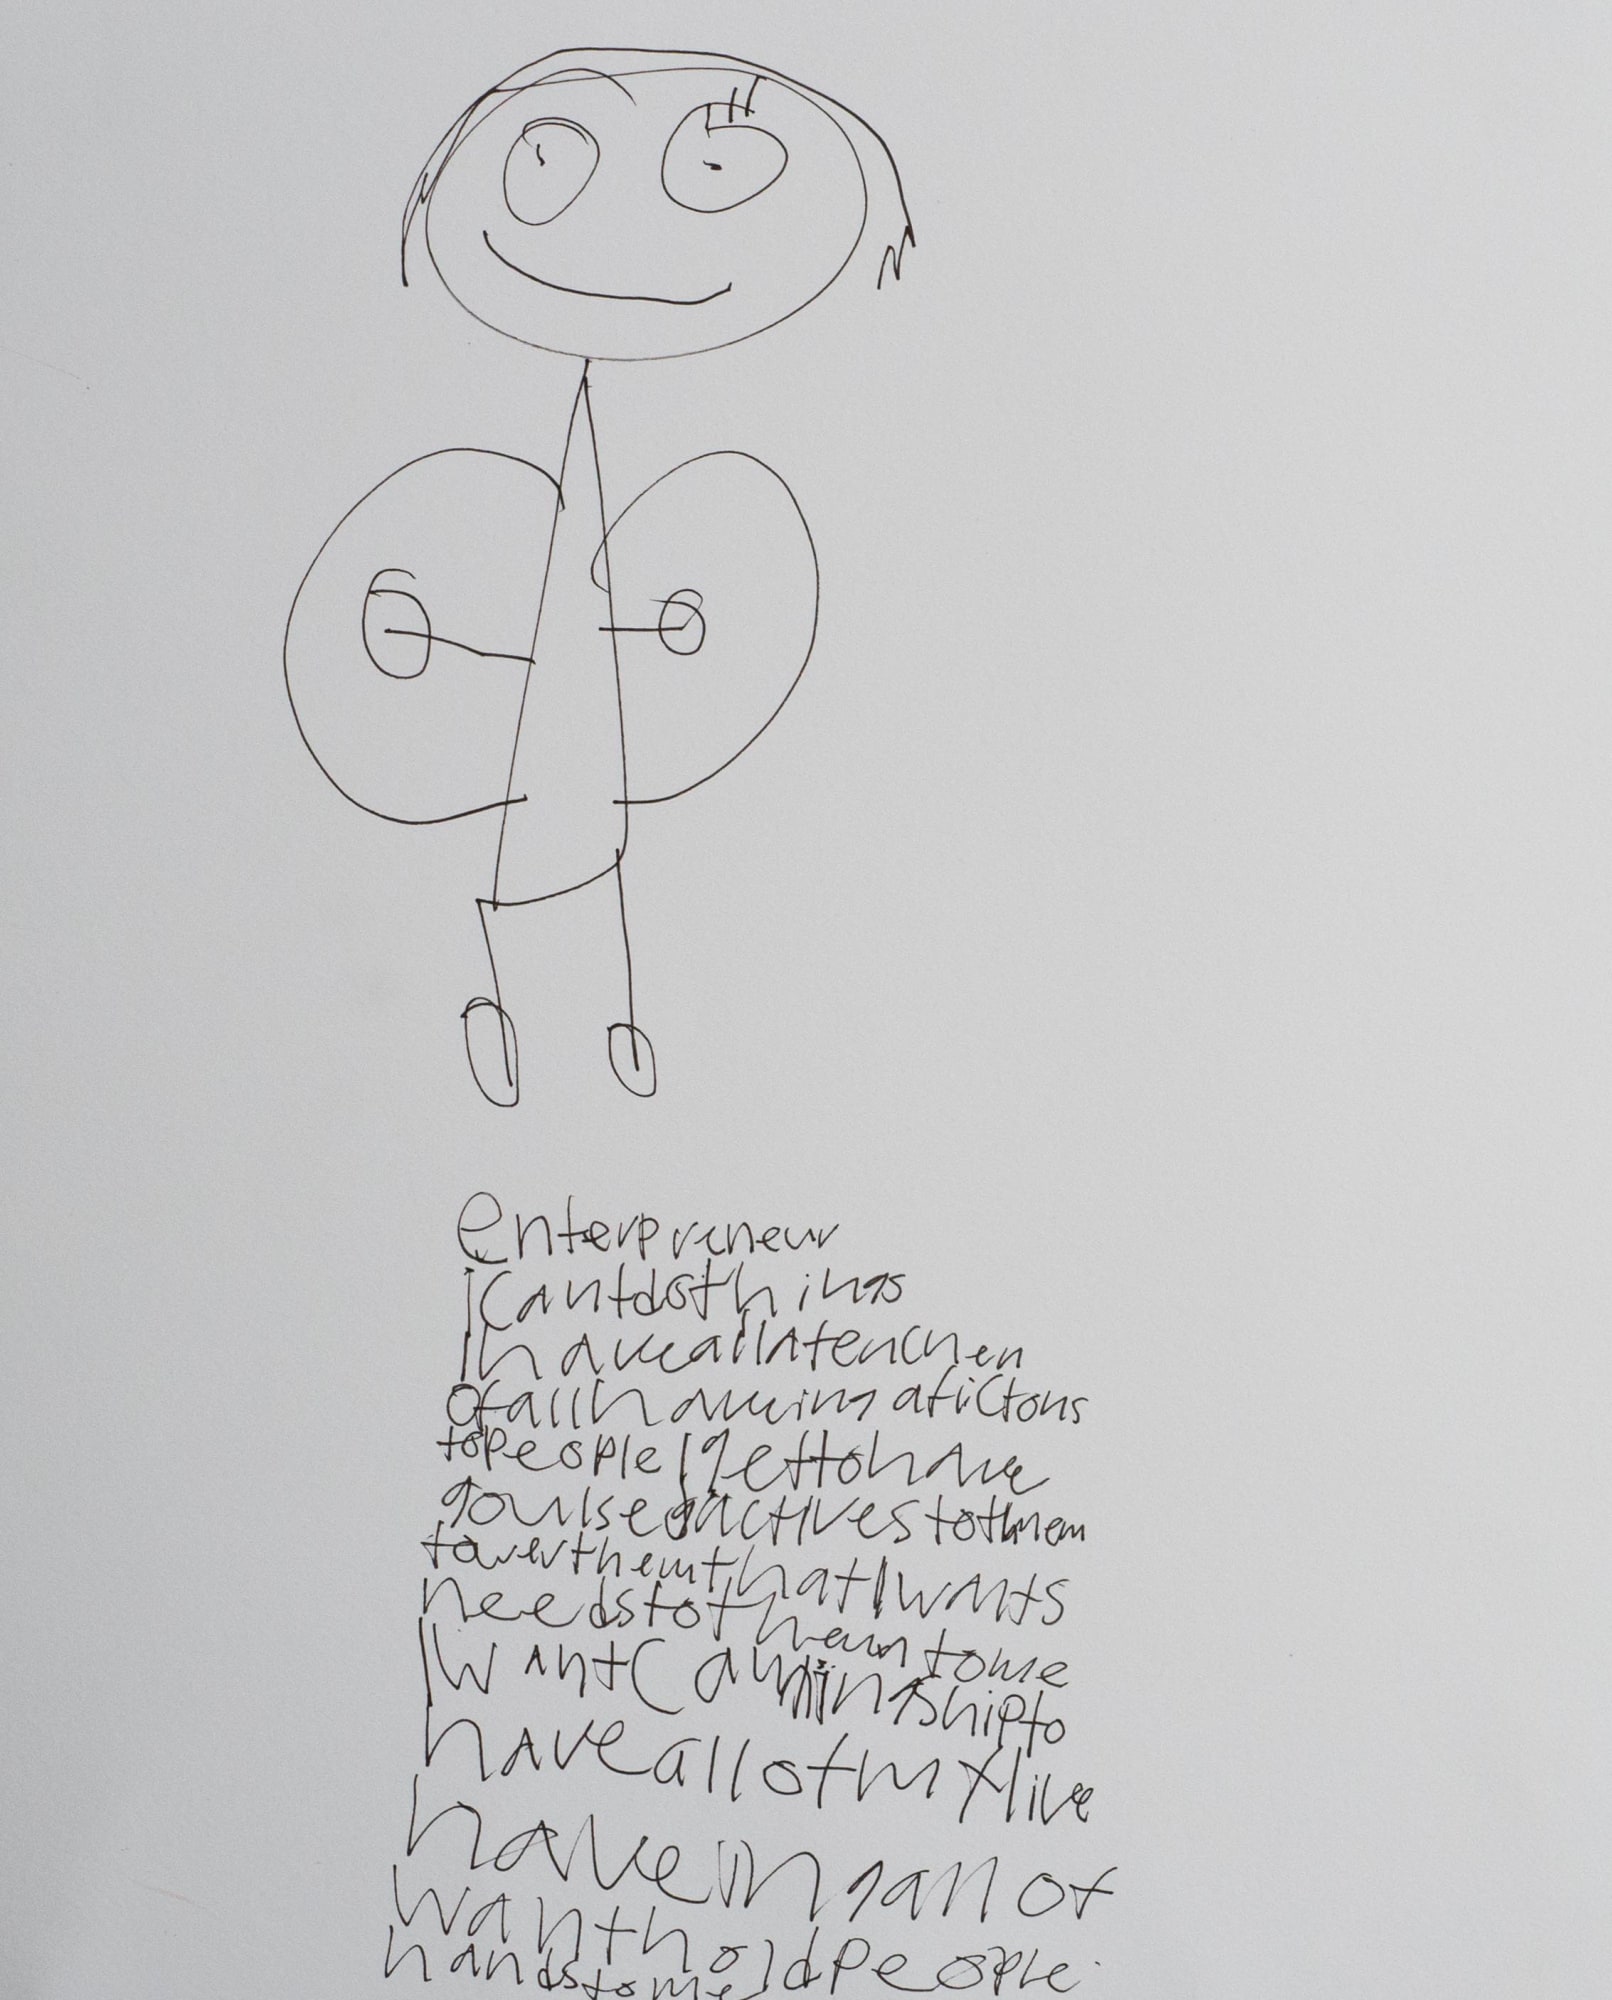 enterpreneur
icantdothings
Ihaveallatenchen
ofallhaveing afictons
topeopleIgettohave
gouisedactivestothem
toverthemthatIwants
needstothem tome
Iwantcaringshipto
haveallofmylive
haveingallof
wanthold people.
handstome